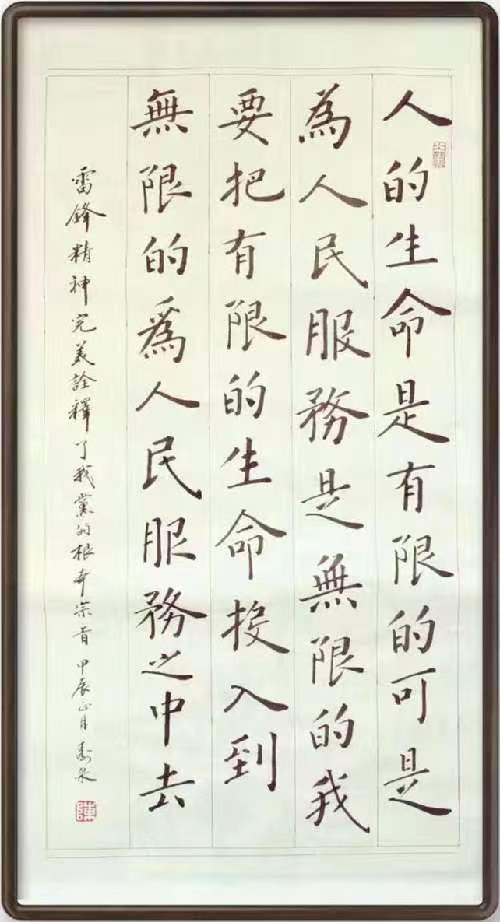 人的生命是有限的可是
為人民服務是無限的我
要把有限的生命投入到
無限的為人民服務之中去
雷鋒精神完美詮釋了我黨的根本宗旨 甲辰正月